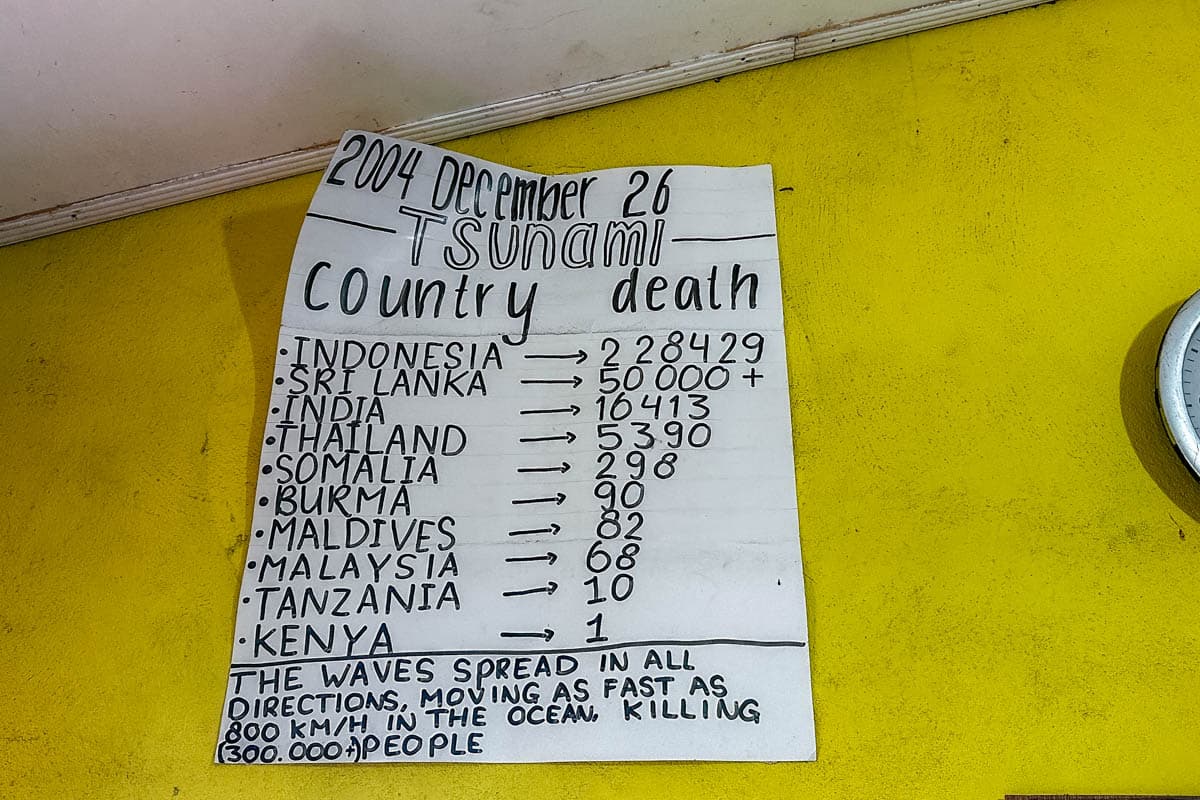 2004 December 26
Tsunami
Country death
·INDONESIA → 228429
·SRI LANKA → 50 000 +
·INDIA → 16413
·THAILAND → 5390
·SOMALIA → 298
·BURMA → 90
·MALDIVES → 82
·MALAYSIA → 68
·TANZANIA → 10
·KENYA → 1
THE WAVES SPREAD IN ALL
DIRECTIONS, MOVING AS FAST AS
800 KM/H IN THE OCEAN, KILLING
(300.000+)PEOPLE